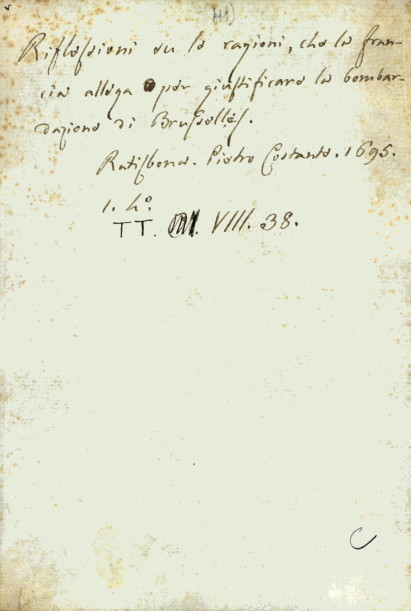 Riflessioni su le ragioni, che la Fran-
cia allega per giustificare la bombar-
dazione di Brusselles.
Ratisbona. Pietro Costante. 1695.
1. 4.º
TT. VIII. 38.
C